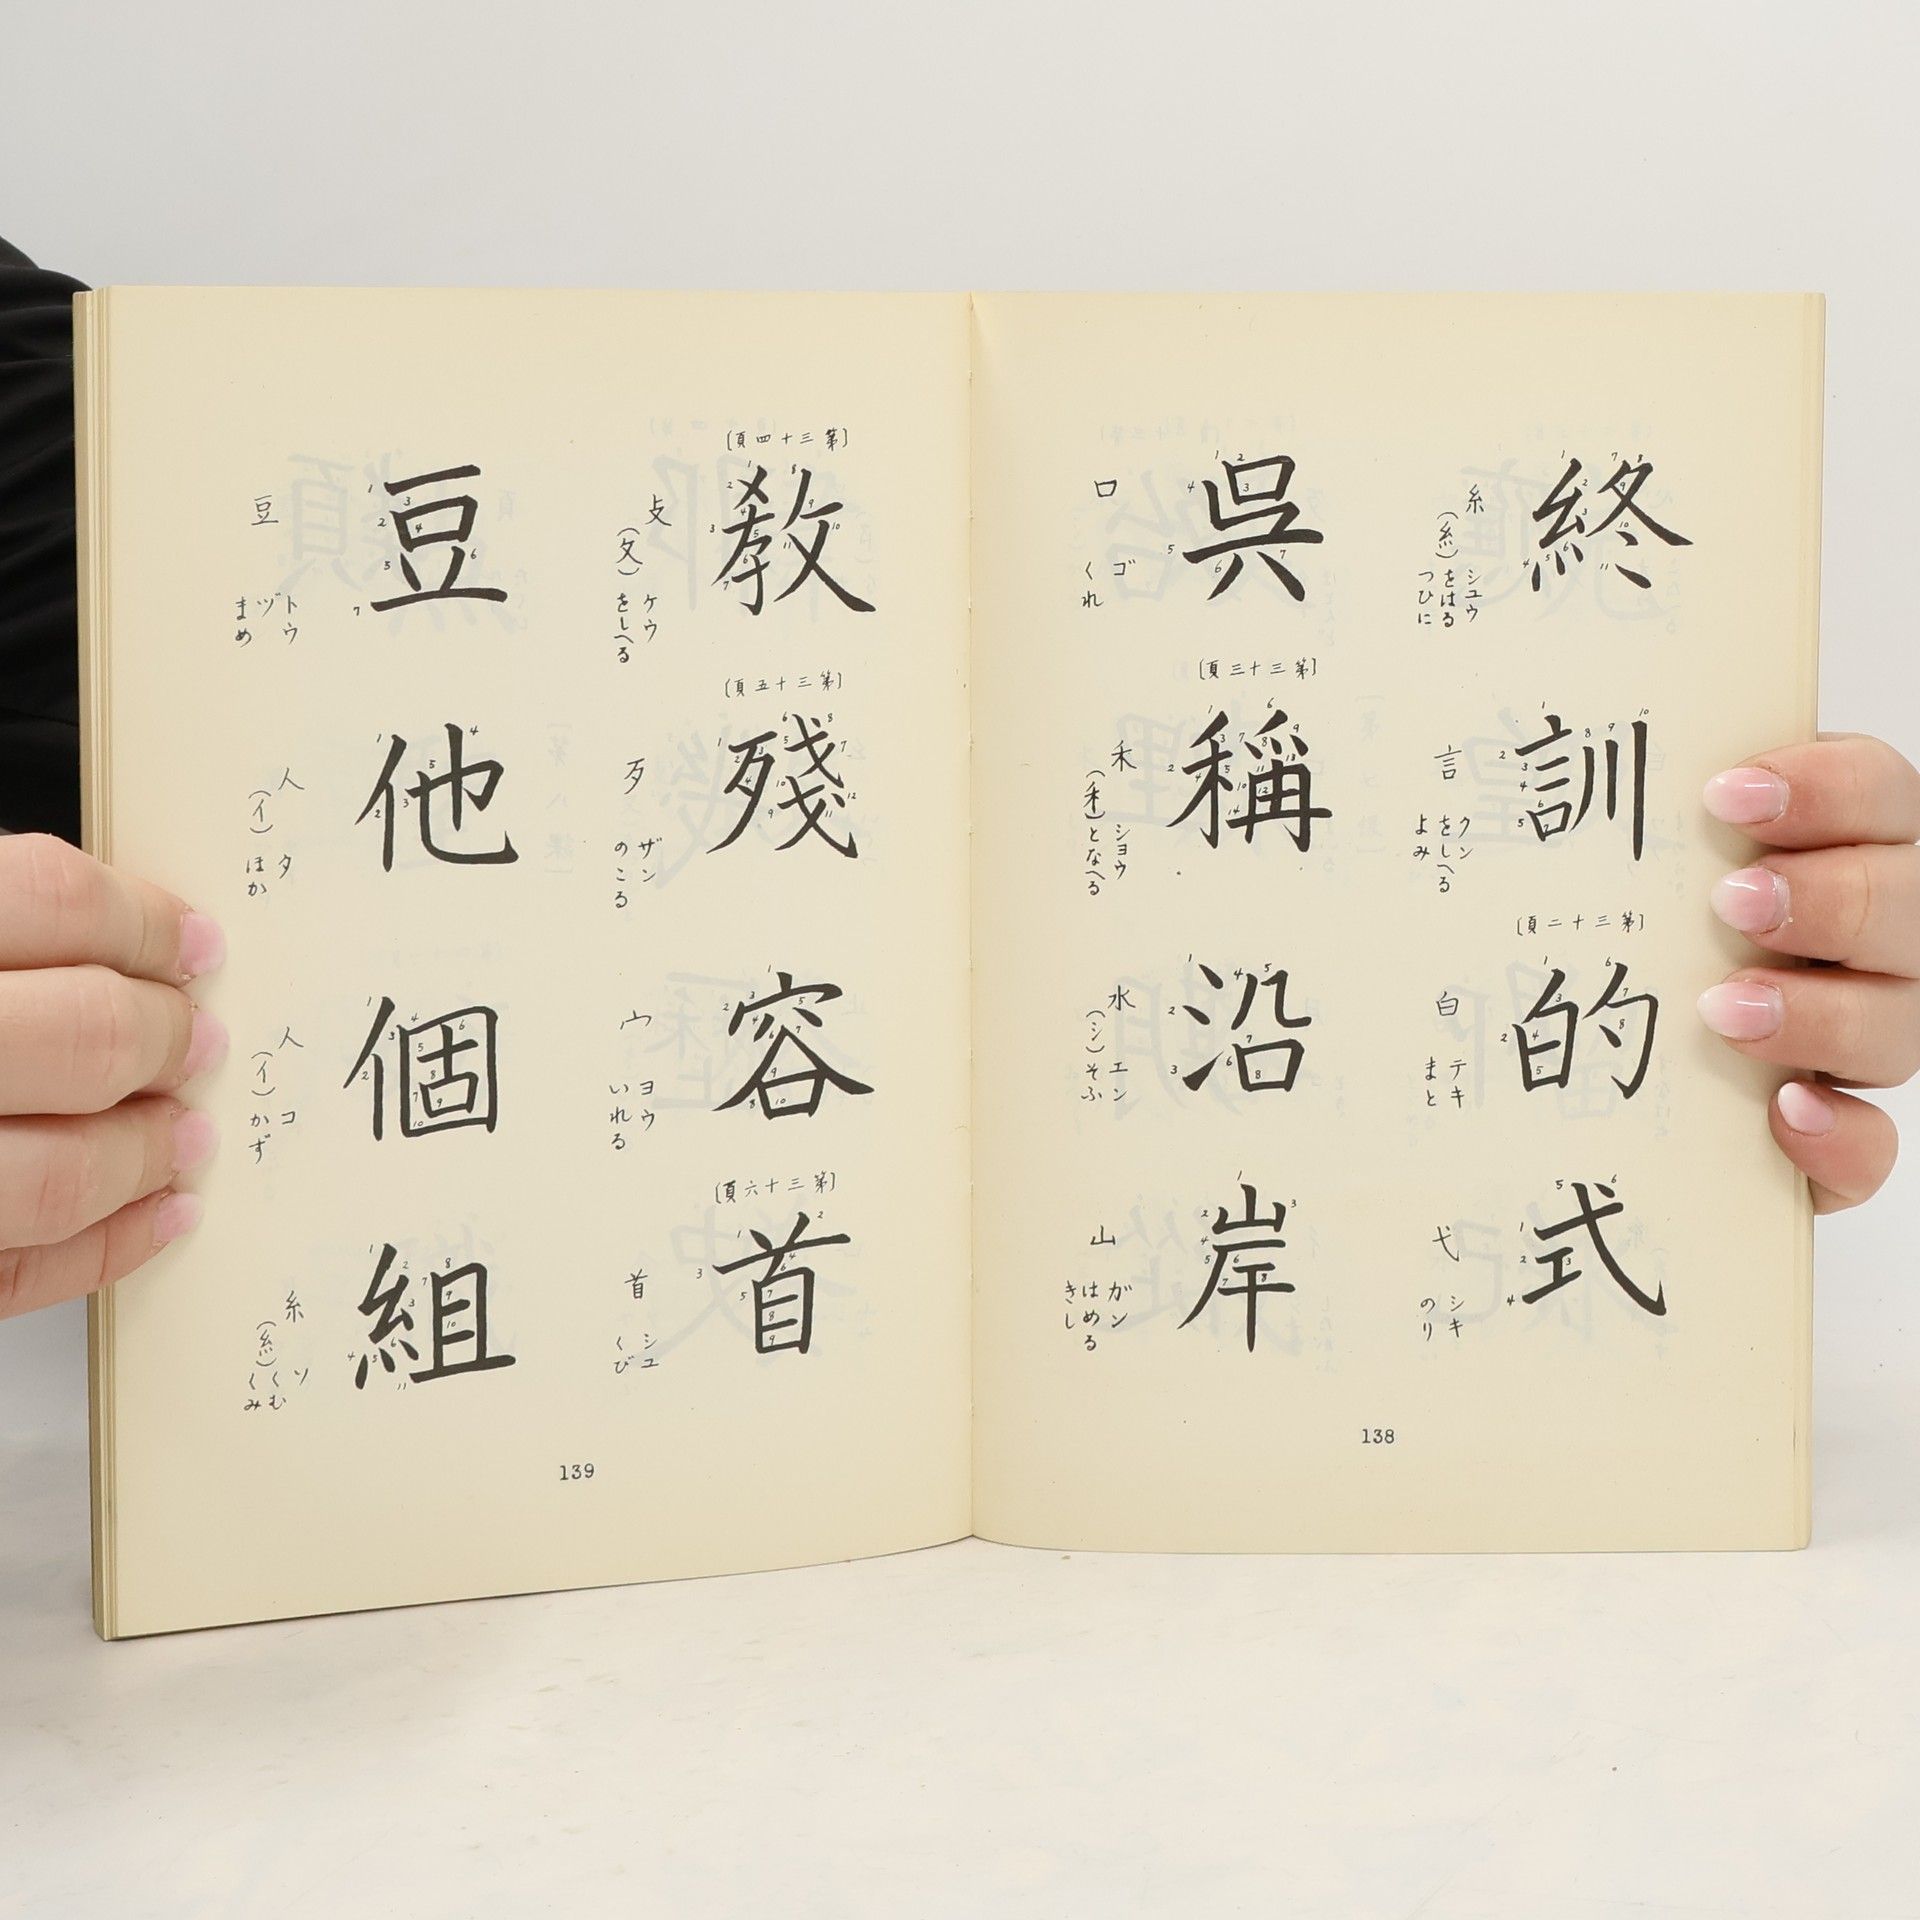 終
糸
(糹)
シユウ
をはる
つひに
訓
言
クン
をしへる
よみ
〔第三十二頁〕
的
白
テキ
まと
式
弋
シキ
のり
呉
口
ゴ
くれ
〔第三十三頁〕
稱
禾
(禾)
ショウ
となへる
沿
水
(氵)
エン
そふ
岸
山
ガン
はめる
きし
138
〔第三十四頁〕
教
攴
(攵)
ケウ
をしへる
〔第三十五頁〕
殘
歹
ザン
のこる
容
宀
ヨウ
いれる
〔第三十六頁〕
首
首
シユ
くび
豆
豆
トウ
ヅ
まめ
他
人
(亻)
タ
ほか
個
人
(亻)
コ
かず
組
糸
(糹)
ソ
くむ
くみ
139